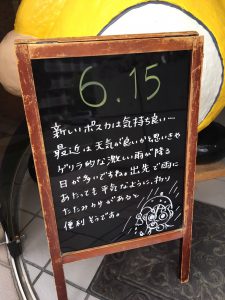 6.15
新しいポスカは気持ち良い…
最近は天気が良いかと思いきや
ゲリラ的な激しい雨が降る
日が多いですね。出先で雨に
あたっても平気なように、折り
たたみカサがあると
便利そうであ。